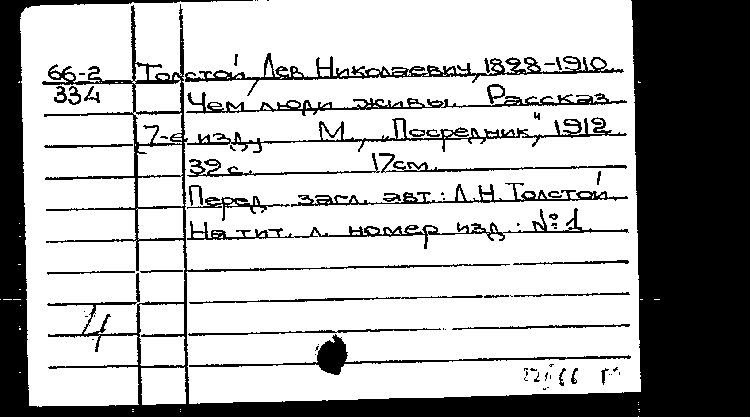 66-2 Толстой, Лев Николаевич, 1828-1910
334 Чем люди живы. Рассказ
[7-е изд.] М., "Посредник", 1912
32 с. 17см.
Перед загл. авт.: Л.Н.Толстой.
На тит. л. номер изд.: №1.
4